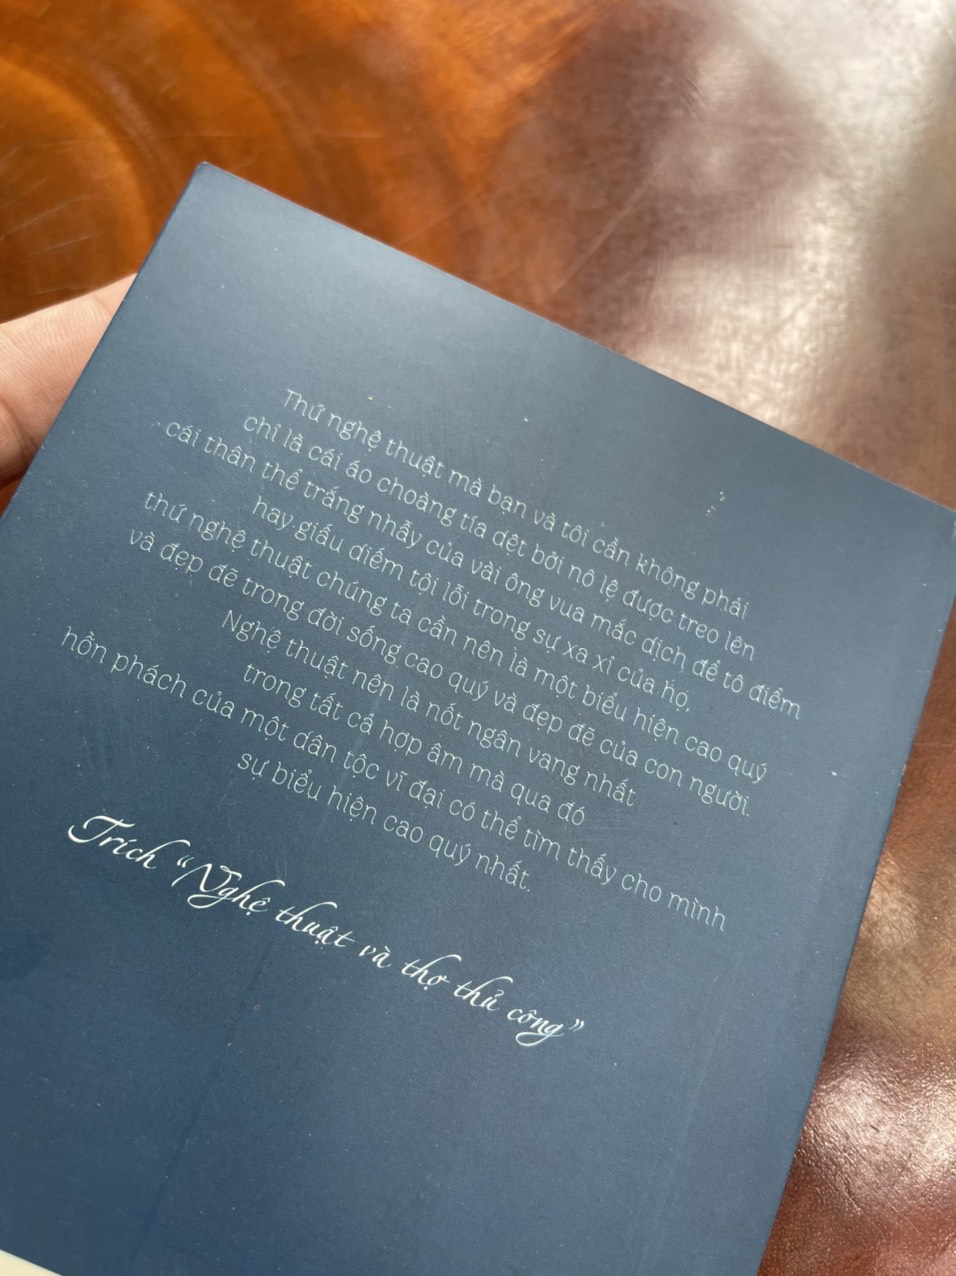 Thứ nghệ thuật mà bạn và tôi cần không phải
chỉ là cái áo choàng tía dệt bởi nô lệ được treo lên
cái thân thể trắng nhẫy của vài ông vua mắc dịch để tô điểm
hay giấu diếm tội lỗi trong sự xa xỉ của họ,
thứ nghệ thuật chúng ta cần nên là một biểu hiện cao quý
và đẹp đẽ trong đời sống cao quý và đẹp đẽ của con người.
Nghệ thuật nên là nốt ngân vang nhất
trong tất cả hợp âm mà qua đó
hồn phách của một dân tộc vĩ đại có thể tìm thấy cho mình
sự biểu hiện cao quý nhất.
Trích “Nghệ thuật và thợ thủ công”